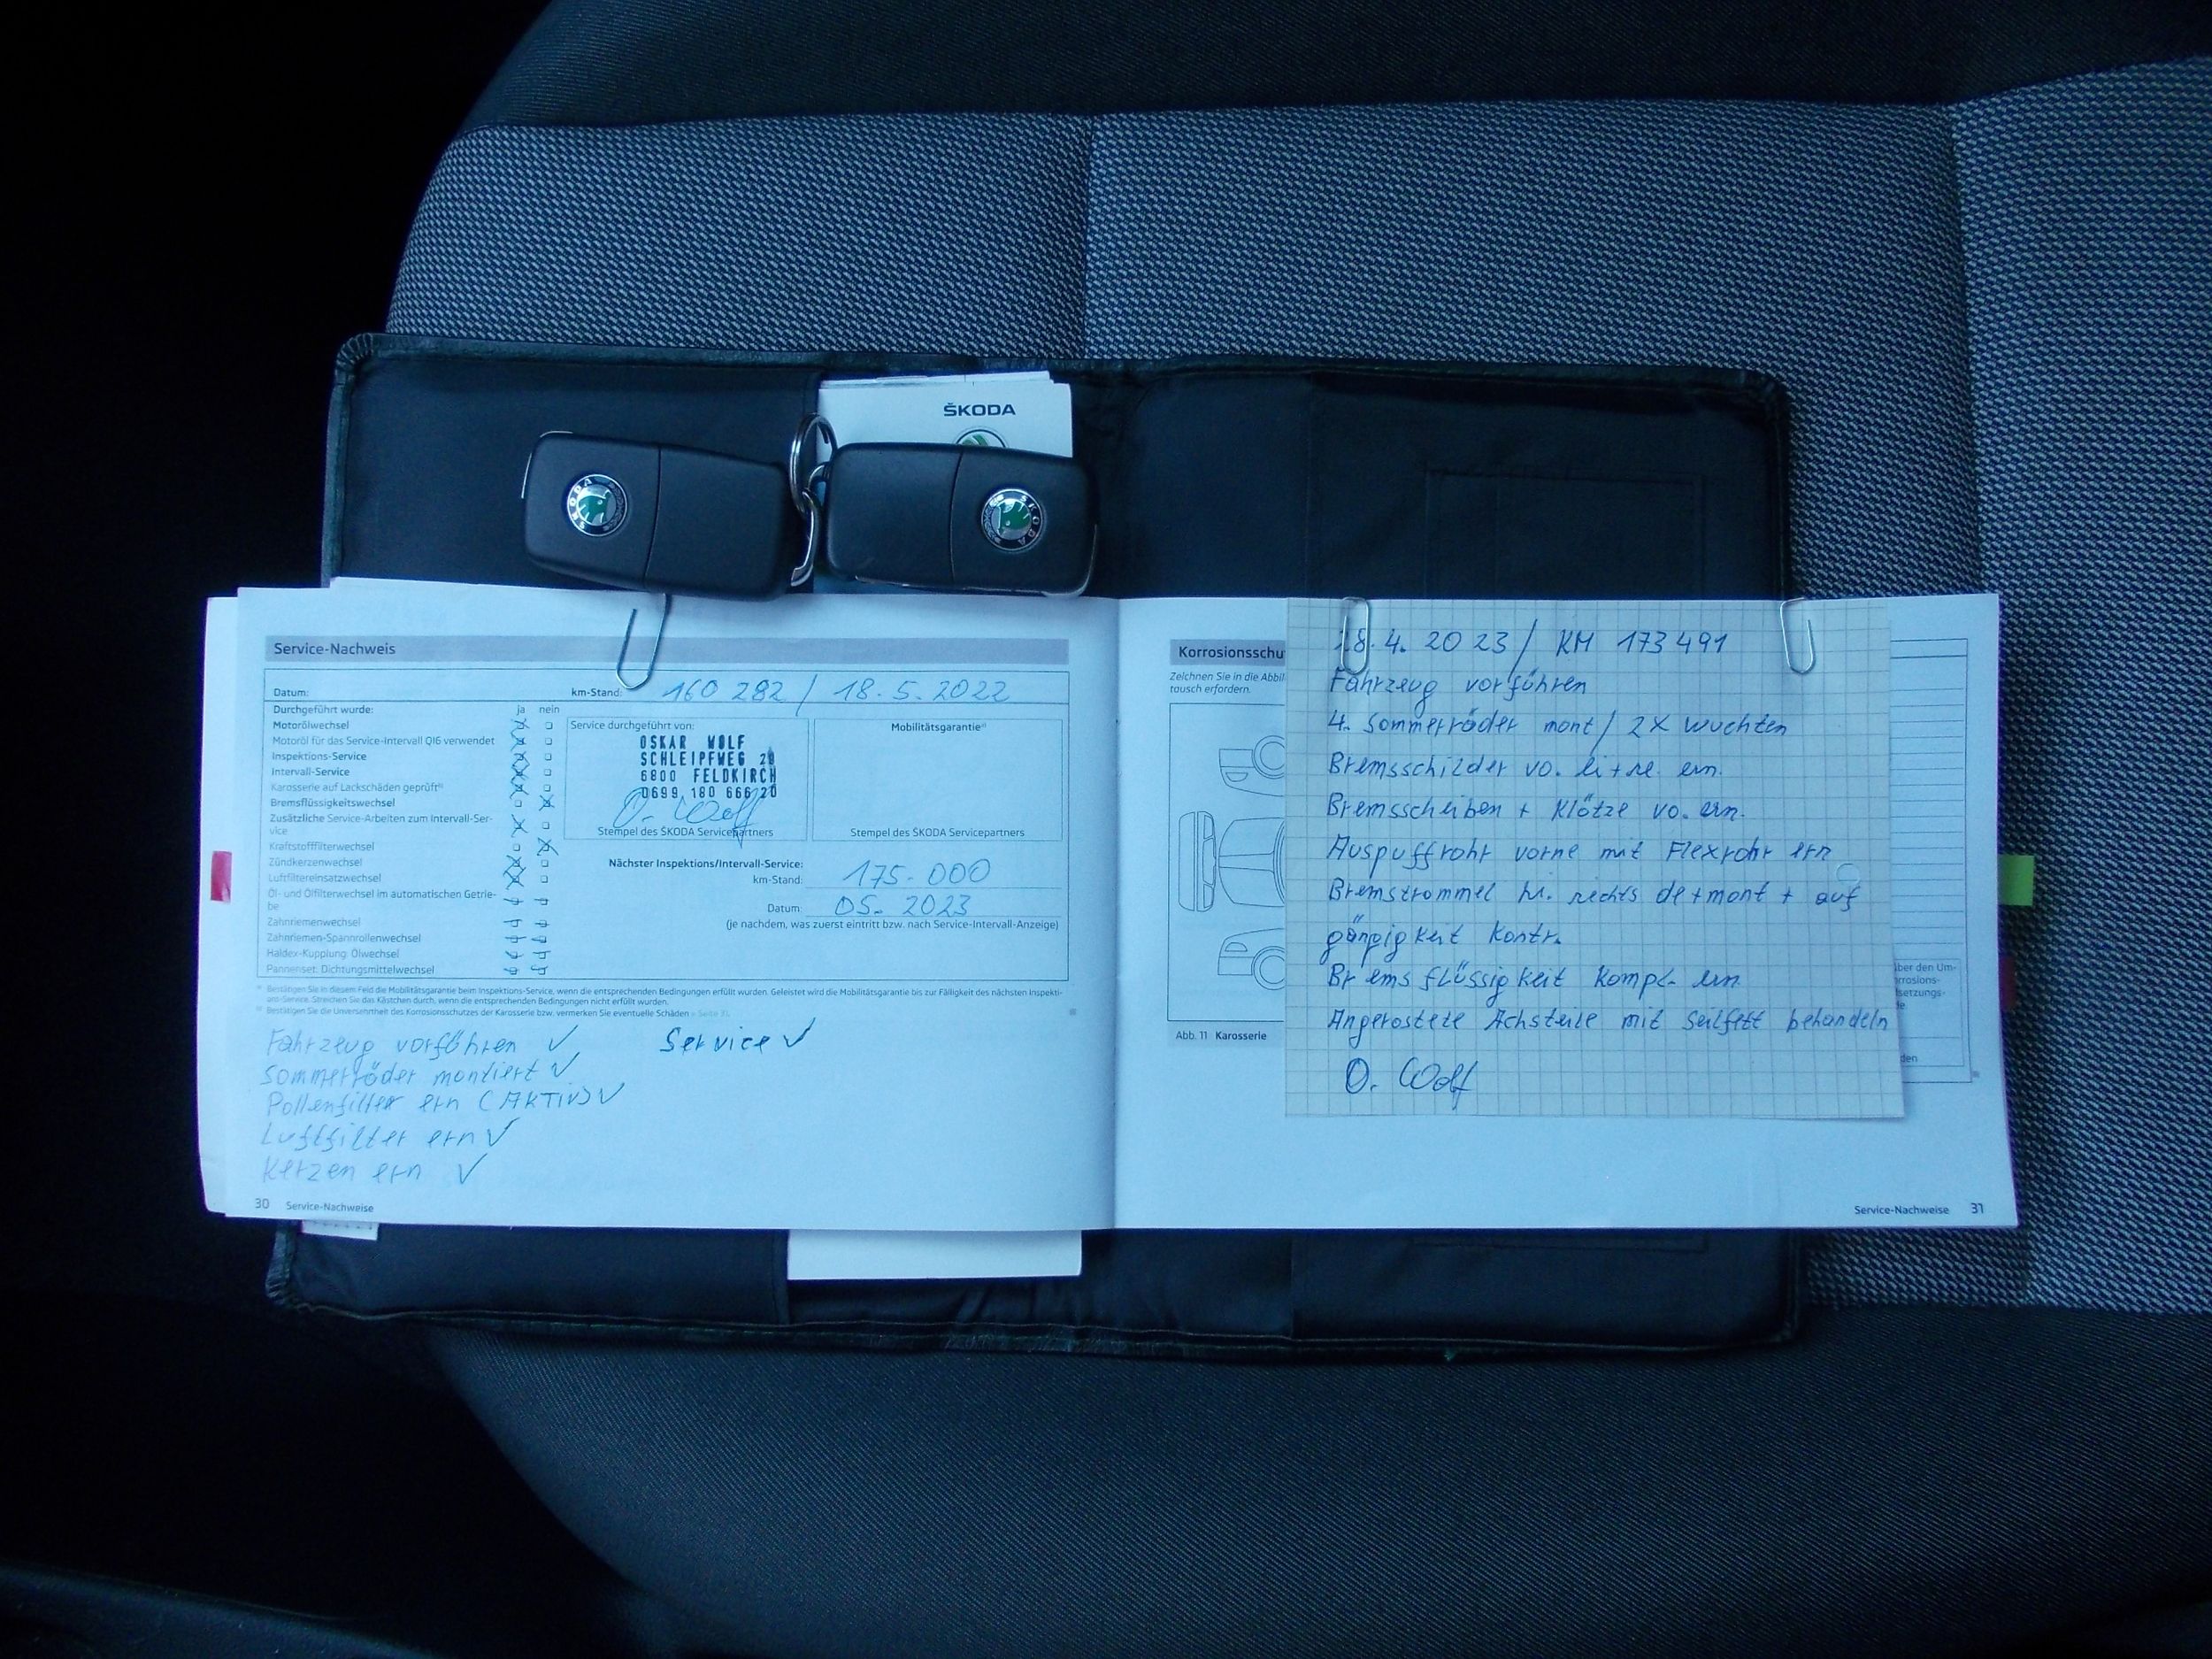 ŠKODA
SKODA
SKODA
Service-Nachweis
Datum:
km-Stand: 160 282 / 18.5.2022
Durchgeführt wurde: ja nein
Motorölwechsel
Motoröl für das Service-Intervall QI6 verwendet
Inspektions-Service
Intervall-Service
Karosserie auf Lackschäden geprüft
Bremsflüssigkeitswechsel
Zusätzliche Service-Arbeiten zum Intervall-Ser-
vice
Kraftstofffilterwechsel
Zündkerzenwechsel
Luftfiltereinsatzwechsel
Öl- und Ölfilterwechsel im automatischen Getrie-
be
Zahnriemenwechsel
Zahnriemen-Spannrollenwechsel
Haldex-Kupplung: Ölwechsel
Pannenset: Dichtungsmittelwechsel
Service durchgeführt von:
OSKAR WOLF
SCHLEIPFWEG 20
6800 FELDKIRCH
0699 180 666 20
O. Wolf
Stempel des ŠKODA Servicepartners
Mobilitätsgarantie
Stempel des ŠKODA Servicepartners
Nächster Inspektions/Intervall-Service:
km-Stand: 175.000
Datum: 05. 2023
(je nachdem, was zuerst eintritt bzw. nach Service-Intervall-Anzeige)
Bestätigen Sie in diesem Feld die Mobilitätsgarantie beim Inspektions-Service, wenn die entsprechenden Bedingungen erfüllt wurden. Geleistet wird die Mobilitätsgarantie bis zur Fälligkeit des nächsten Inspekti-
ons-Service. Streichen Sie das Kästchen durch, wenn die entsprechenden Bedingungen nicht erfüllt wurden.
Bestätigen Sie die Unversehrtheit des Korrosionsschutzes der Karosserie bzw. vermerken Sie eventuelle Schäden » Seite 31.
Fahrzeug vorführen ✓ Service ✓
Sommerräder montiert ✓
Pollenfilter ern (AKTIV) ✓
Luftfilter ern ✓
Kerzen ern ✓
30 Service-Nachweise
Korrosionsschu
Zeichnen Sie in die Abbil
tausch erfordern.
Abb. 11 Karosserie
28.4. 2023 / KM 173 491
Fahrzeug vorführen
4. Sommerräder mont / 2x wuchten
Bremsschilder vo. li + re. ern.
Bremsscheiben + Klötze vo. ern.
Auspuffrohr vorne mit Flexrohr ern
Bremstrommel hi. rechts de + mont + auf
gängigkeit kontr.
Bremsflüssigkeit kompl. ern
Angerostete Achsteile mit Seilfett behandeln
O. Wolf
über den Um-
rrosions-
setzungs-
Service-Nachweise 31